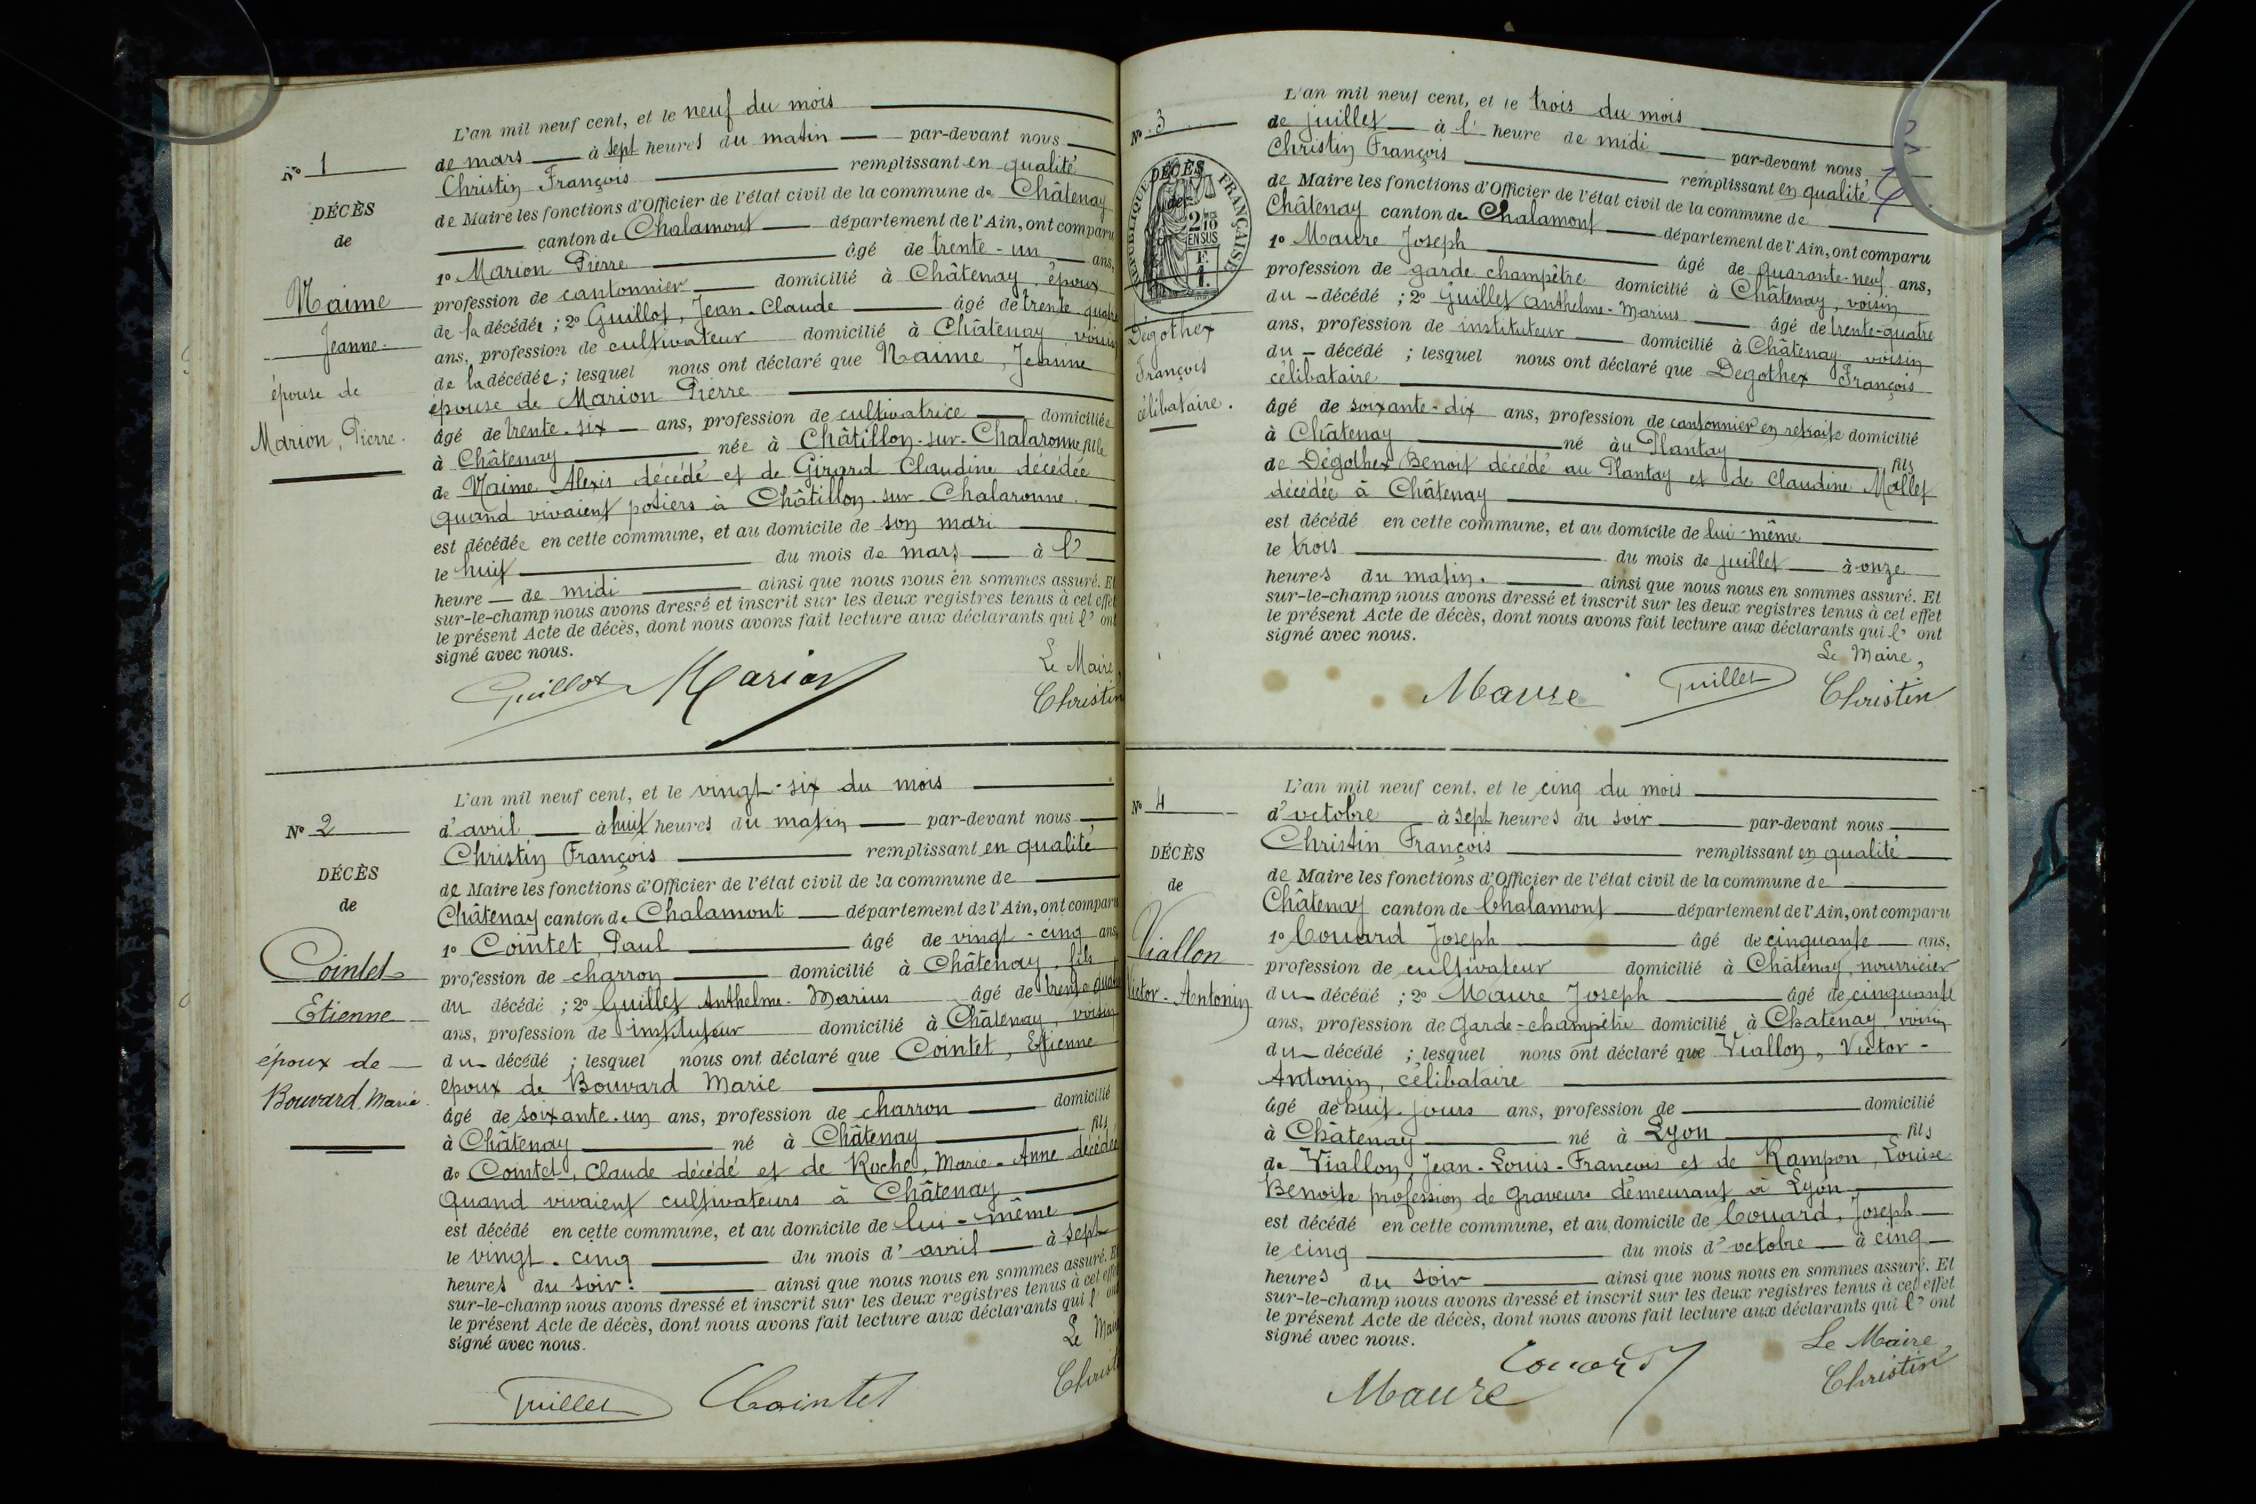 N° 1
DÉCÈS
de
Naime
Jeanne.
épouse de
Marion, Pierre.
L'an mil neuf cent, et le neuf du mois
de mars à sept heures du matin par-devant nous
Christin François remplissant en qualité
de Maire les fonctions d'Officier de l'état civil de la commune de Châtenay
canton de Chalamont département de l'Ain, ont comparu
1° Marion Pierre âgé de trente-un ans,
profession de cantonnier domicilié à Châtenay, époux
de la décédée ; 2° Guillot, Jean-Claude âgé de trente-quatre
ans, profession de cultivateur domicilié à Châtenay voisin
de la décédée ; lesquel nous ont déclaré que Naime, Jeanne
épouse de Marion Pierre
âgé de trente-six ans, profession de cultivatrice domiciliée
à Châtenay née à Châtillon-sur-Chalaronne fille
de Naime Alexis décédé et de Girard Claudine décédée
quand vivaient potiers à Châtillon-sur-Chalaronne.
est décédée en cette commune, et au domicile de son mari
le huit du mois de mars à l'
heure de midi ainsi que nous nous en sommes assuré. Et
sur-le-champ nous avons dressé et inscrit sur les deux registres tenus à cet effet
le présent Acte de décès, dont nous avons fait lecture aux déclarants qui l' ont
signé avec nous.
Le Maire,
Guillot Marion Christin
N° 2
DÉCÈS
de
Cointet
Etienne
époux de
Bouvard, Marie.
L'an mil neuf cent, et le vingt-six du mois
d'avril à huit heures du matin par-devant nous
Christin François remplissant en qualité
de Maire les fonctions d'Officier de l'état civil de la commune de
Châtenay canton de Chalamont département de l'Ain, ont comparu
1° Cointet Paul âgé de vingt-cinq ans,
profession de charron domicilié à Châtenay, fils
du décédé ; 2° Guillet Anthelme-Marius âgé de trente-quatre
ans, profession de instituteur domicilié à Châtenay, voisin
du décédé ; lesquel nous ont déclaré que Cointet, Etienne
époux de Bouvard Marie
âgé de soixante-un ans, profession de charron domicilié
à Châtenay né à Châtenay fils
de Cointet, Claude décédé et de Roche, Marie-Anne décédée
quand vivaient cultivateurs à Châtenay
est décédé en cette commune, et au domicile de lui-même
le vingt-cinq du mois d'avril à sept
heures du soir. ainsi que nous nous en sommes assuré. Et
sur-le-champ nous avons dressé et inscrit sur les deux registres tenus à cet effet
le présent Acte de décès, dont nous avons fait lecture aux déclarants qui l' ont
signé avec nous.
Le Maire
Guillet Cointet Christin
N° 3
DÉCÈS
de
RÉPUBLIQUE FRANÇAISE
2/10 EN SUS
F. 1.
Dégothex
François
célibataire.
L'an mil neuf cent, et le trois du mois
de juillet à l' heure de midi par-devant nous
Christin François remplissant en qualité
de Maire les fonctions d'Officier de l'état civil de la commune de
Châtenay canton de Chalamont département de l'Ain, ont comparu
1° Maure Joseph âgé de quarante-neuf ans,
profession de garde champêtre domicilié à Châtenay, voisin
du décédé ; 2° Guillet Anthelme-Marius âgé de trente-quatre
ans, profession de instituteur domicilié à Châtenay voisin
du décédé ; lesquel nous ont déclaré que Dégothex François
célibataire
âgé de soixante-dix ans, profession de cantonnier en retraite domicilié
à Châtenay né àu Plantay fils
de Dégothex Benoit décédé au Plantay et de Claudine Mallet
décédée à Châtenay
est décédé en cette commune, et au domicile de lui-même
le trois du mois de juillet à onze
heures du matin. ainsi que nous nous en sommes assuré. Et
sur-le-champ nous avons dressé et inscrit sur les deux registres tenus à cet effet
le présent Acte de décès, dont nous avons fait lecture aux déclarants qui l' ont
signé avec nous.
Le Maire,
Maure Guillet Christin
N° 4
DÉCÈS
de
Viallon
Victor-Antonin
L'an mil neuf cent, et le cinq du mois
d'octobre à sept heures du soir par-devant nous
Christin François remplissant en qualité
de Maire les fonctions d'Officier de l'état civil de la commune de
Châtenay canton de Chalamont département de l'Ain, ont comparu
1° Couard Joseph âgé de cinquante ans,
profession de cultivateur domicilié à Châtenay, nourricier
du décédé ; 2° Maure Joseph âgé de cinquante
ans, profession de Garde-champêtre domicilié à Chatenay voisin
du décédé ; lesquel nous ont déclaré que Viallon, Victor-
Antonin, célibataire
âgé de huit jours ans, profession de domicilié
à Châtenay né à Lyon fils
de Viallon Jean-Louis-François et de Rampon, Louise
Benoite profession de graveurs demeurant à Lyon
est décédé en cette commune, et au domicile de Couard, Joseph
le cinq du mois d'octobre à cinq
heures du soir ainsi que nous nous en sommes assuré. Et
sur-le-champ nous avons dressé et inscrit sur les deux registres tenus à cet effet
le présent Acte de décès, dont nous avons fait lecture aux déclarants qui l' ont
signé avec nous.
Le Maire,
Maure Couard Christin